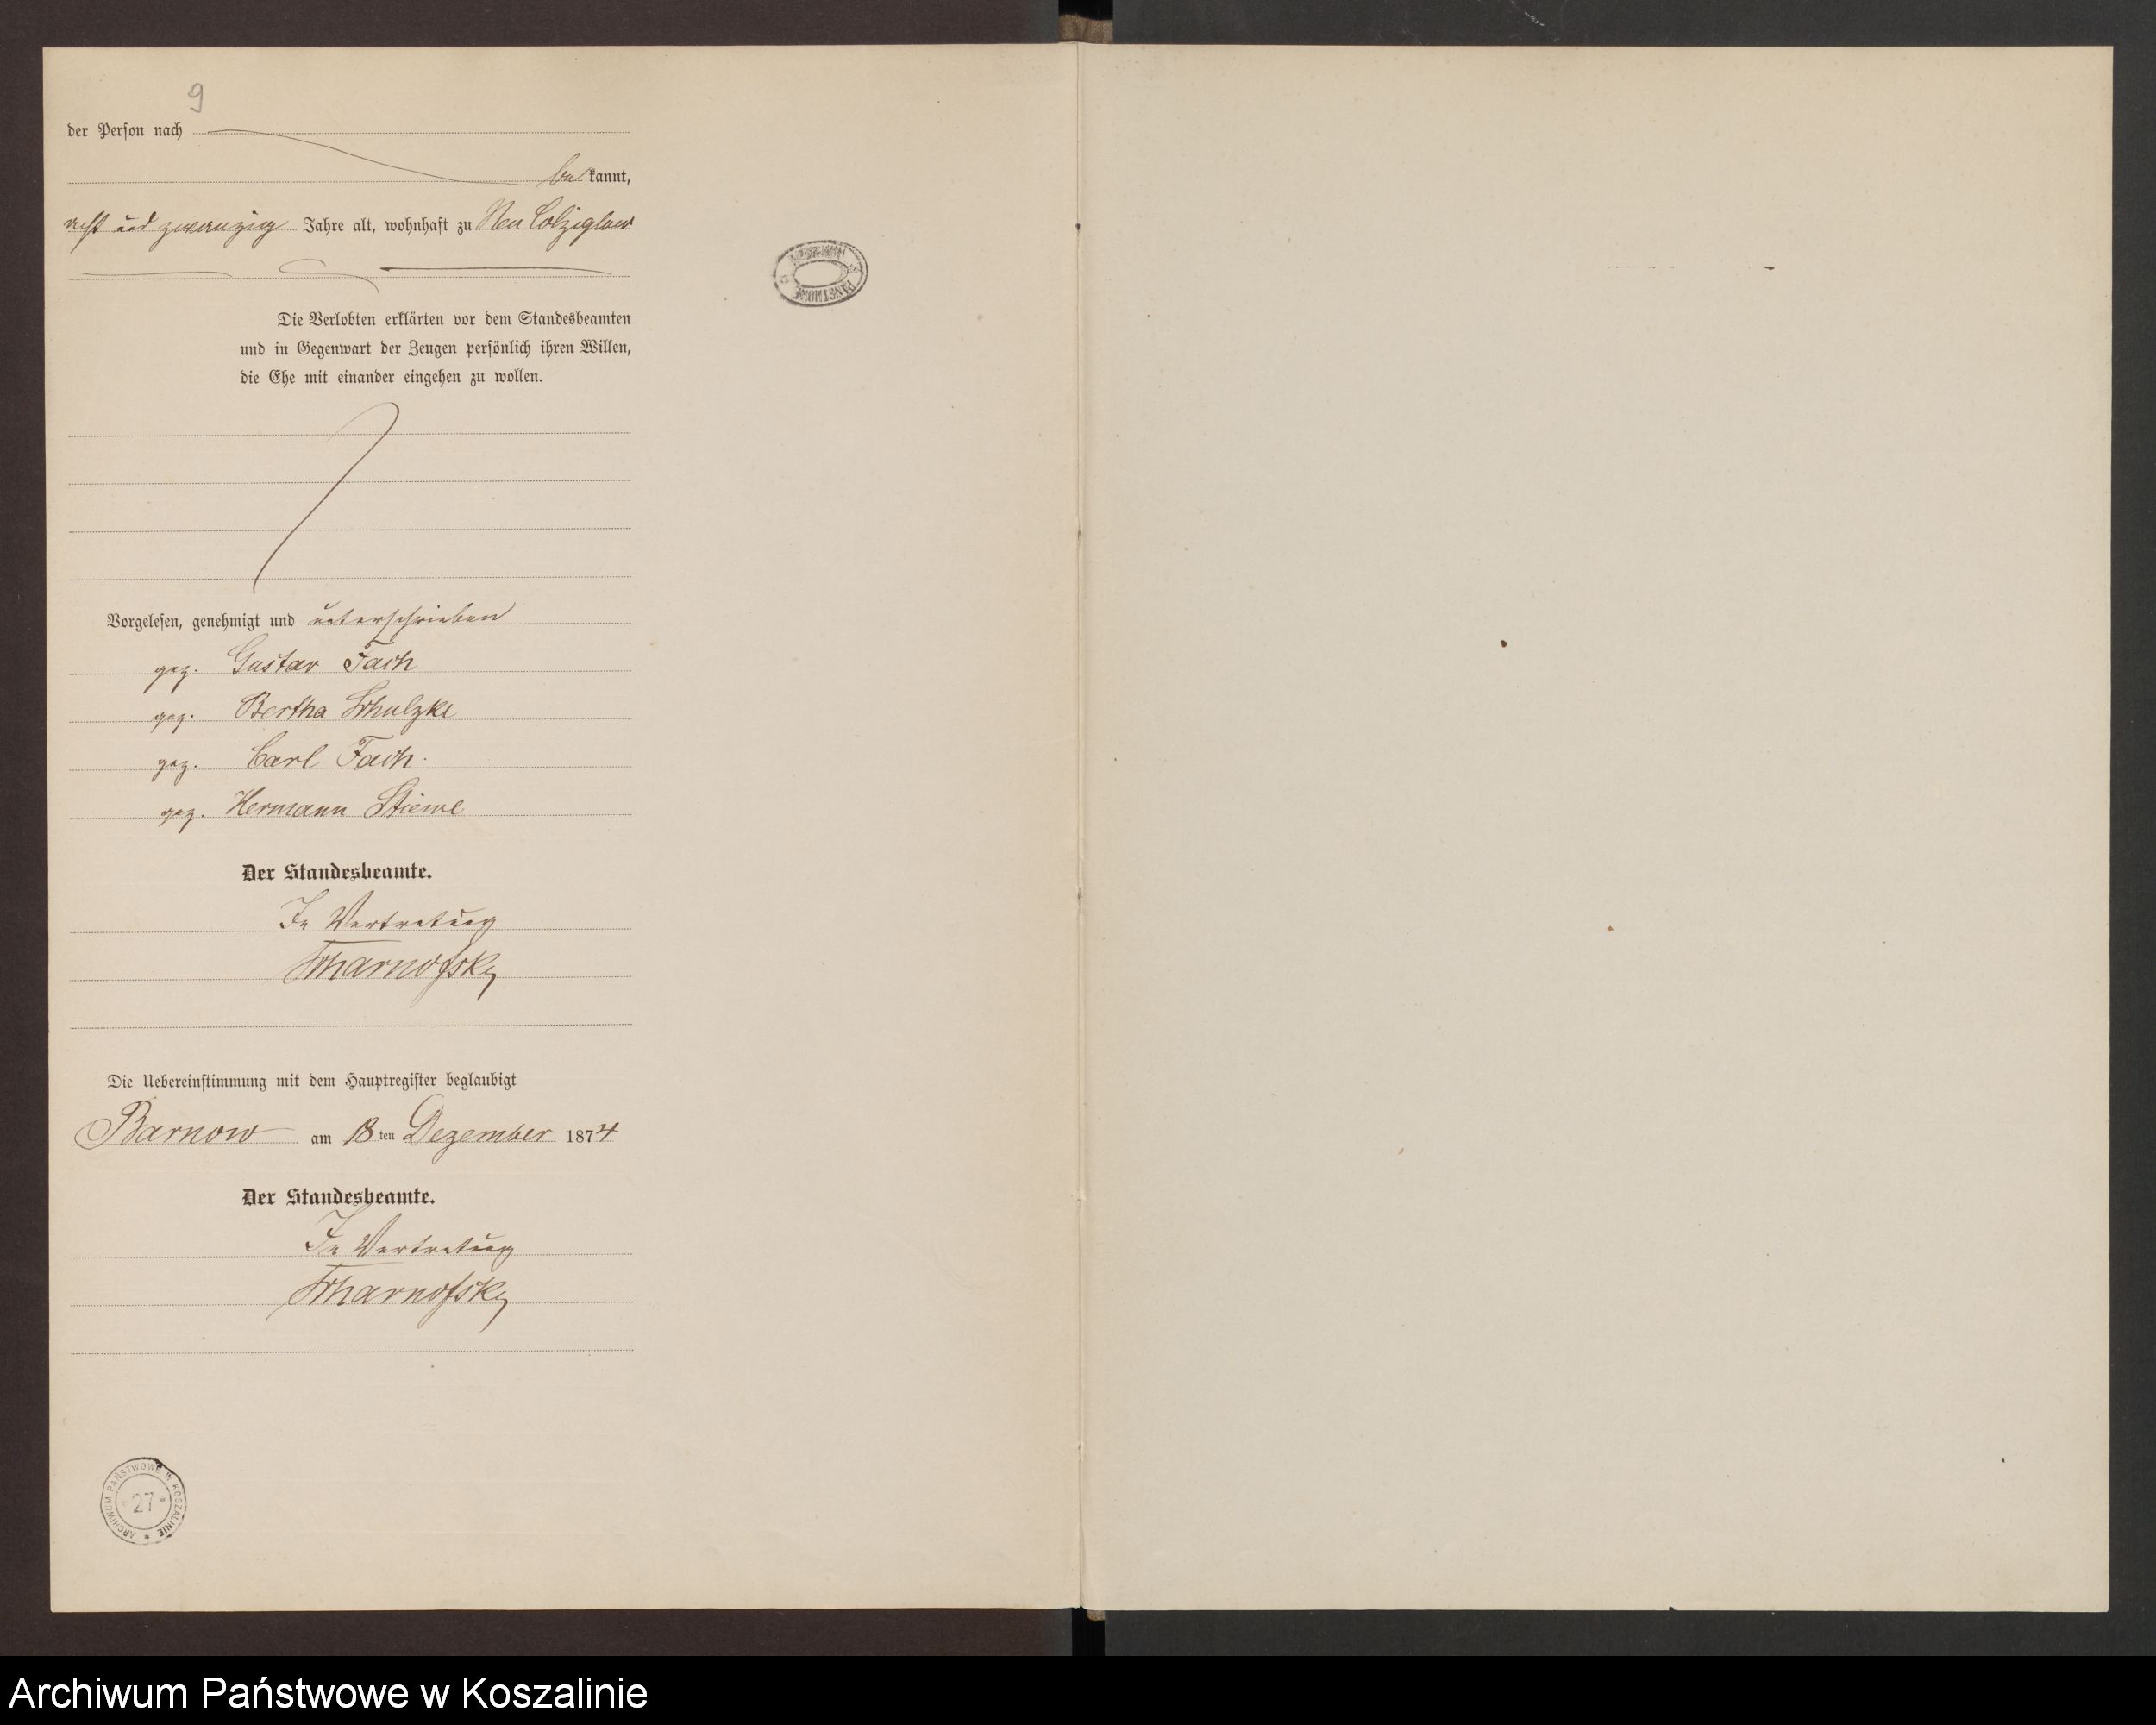 9
der Person nach
be kannt,
acht und zwanzig Jahre alt, wohnhaft zu Neu Colziglow
Die Verlobten erklärten vor dem Standesbeamten
und in Gegenwart der Zeugen persönlich ihren Willen,
die Ehe mit einander eingehen zu wollen.
Vorgelesen, genehmigt und unterschrieben
gez. Gustav Fach
gez. Bertha Schulzke
gez. Carl Fach.
gez. Hermann Stiewe
Der Standesbeamte.
In Vertretung
Scharnofsky
Die Uebereinstimmung mit dem Hauptregister beglaubigt
Barnow am 18 ten Dezember 1874
Der Standesbeamte.
In Vertretung
Scharnofsky
ARCHIWUM PAŃSTWOWE W KOSZALINIE
* 27 *
Archiwum Państwowe w Koszalinie